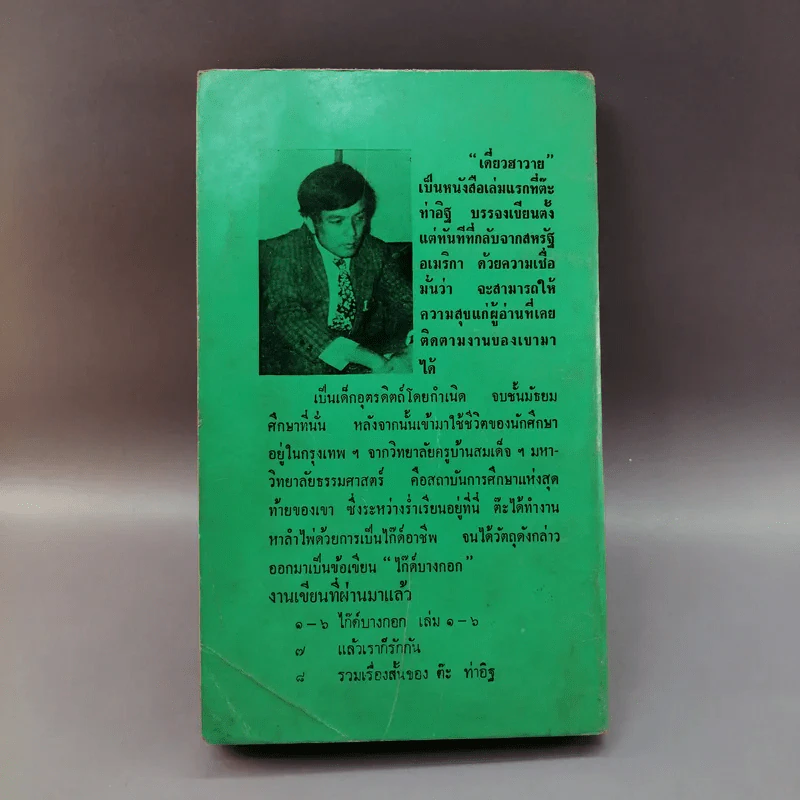 “เดี่ยวฮาวาย”
เป็นหนังสือเล่มแรกที่ต๊ะ
ท่าอิฐ บรรจงเขียนตั้ง
แต่ทันทีที่กลับจากสหรัฐ
อเมริกา ด้วยความเชื่อ
มั่นว่า จะสามารถให้
ความสุขแก่ผู้อ่านที่เคย
ติดตามงานของเขามา
ได้
เป็นเด็กอุตรดิตถ์โดยกำเนิด จบชั้นมัธยม
ศึกษาที่นั่น หลังจากนั้นเข้ามาใช้ชีวิตของนักศึกษา
อยู่ในกรุงเทพ ฯ จากวิทยาลัยครูบ้านสมเด็จ ฯ มหา-
วิทยาลัยธรรมศาสตร์ คือสถาบันการศึกษาแห่งสุด
ท้ายของเขา ซึ่งระหว่างร่ำเรียนอยู่ที่นี่ ต๊ะได้ทำงาน
หาลำไพ่ด้วยการเป็นไก๊ด์อาชีพ จนได้วัตถุดังกล่าว
ออกมาเป็นข้อเขียน “ไก๊ด์บางกอก”
งานเขียนที่ผ่านมาแล้ว
๑–๖ ไก๊ด์บางกอก เล่ม ๑–๖
๗ แล้วเราก็รักกัน
๘ รวมเรื่องสั้นของ ต๊ะ ท่าอิฐ